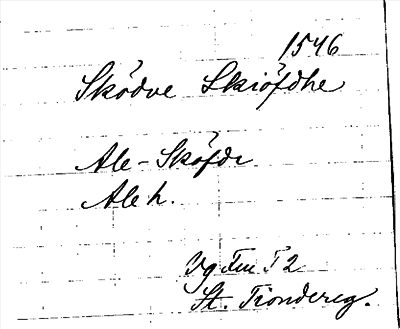 1546
Sködve Skiöfdhe
Ale-Sköfde
Ale h.
Vg Fm T 2
St. Tiondereg.